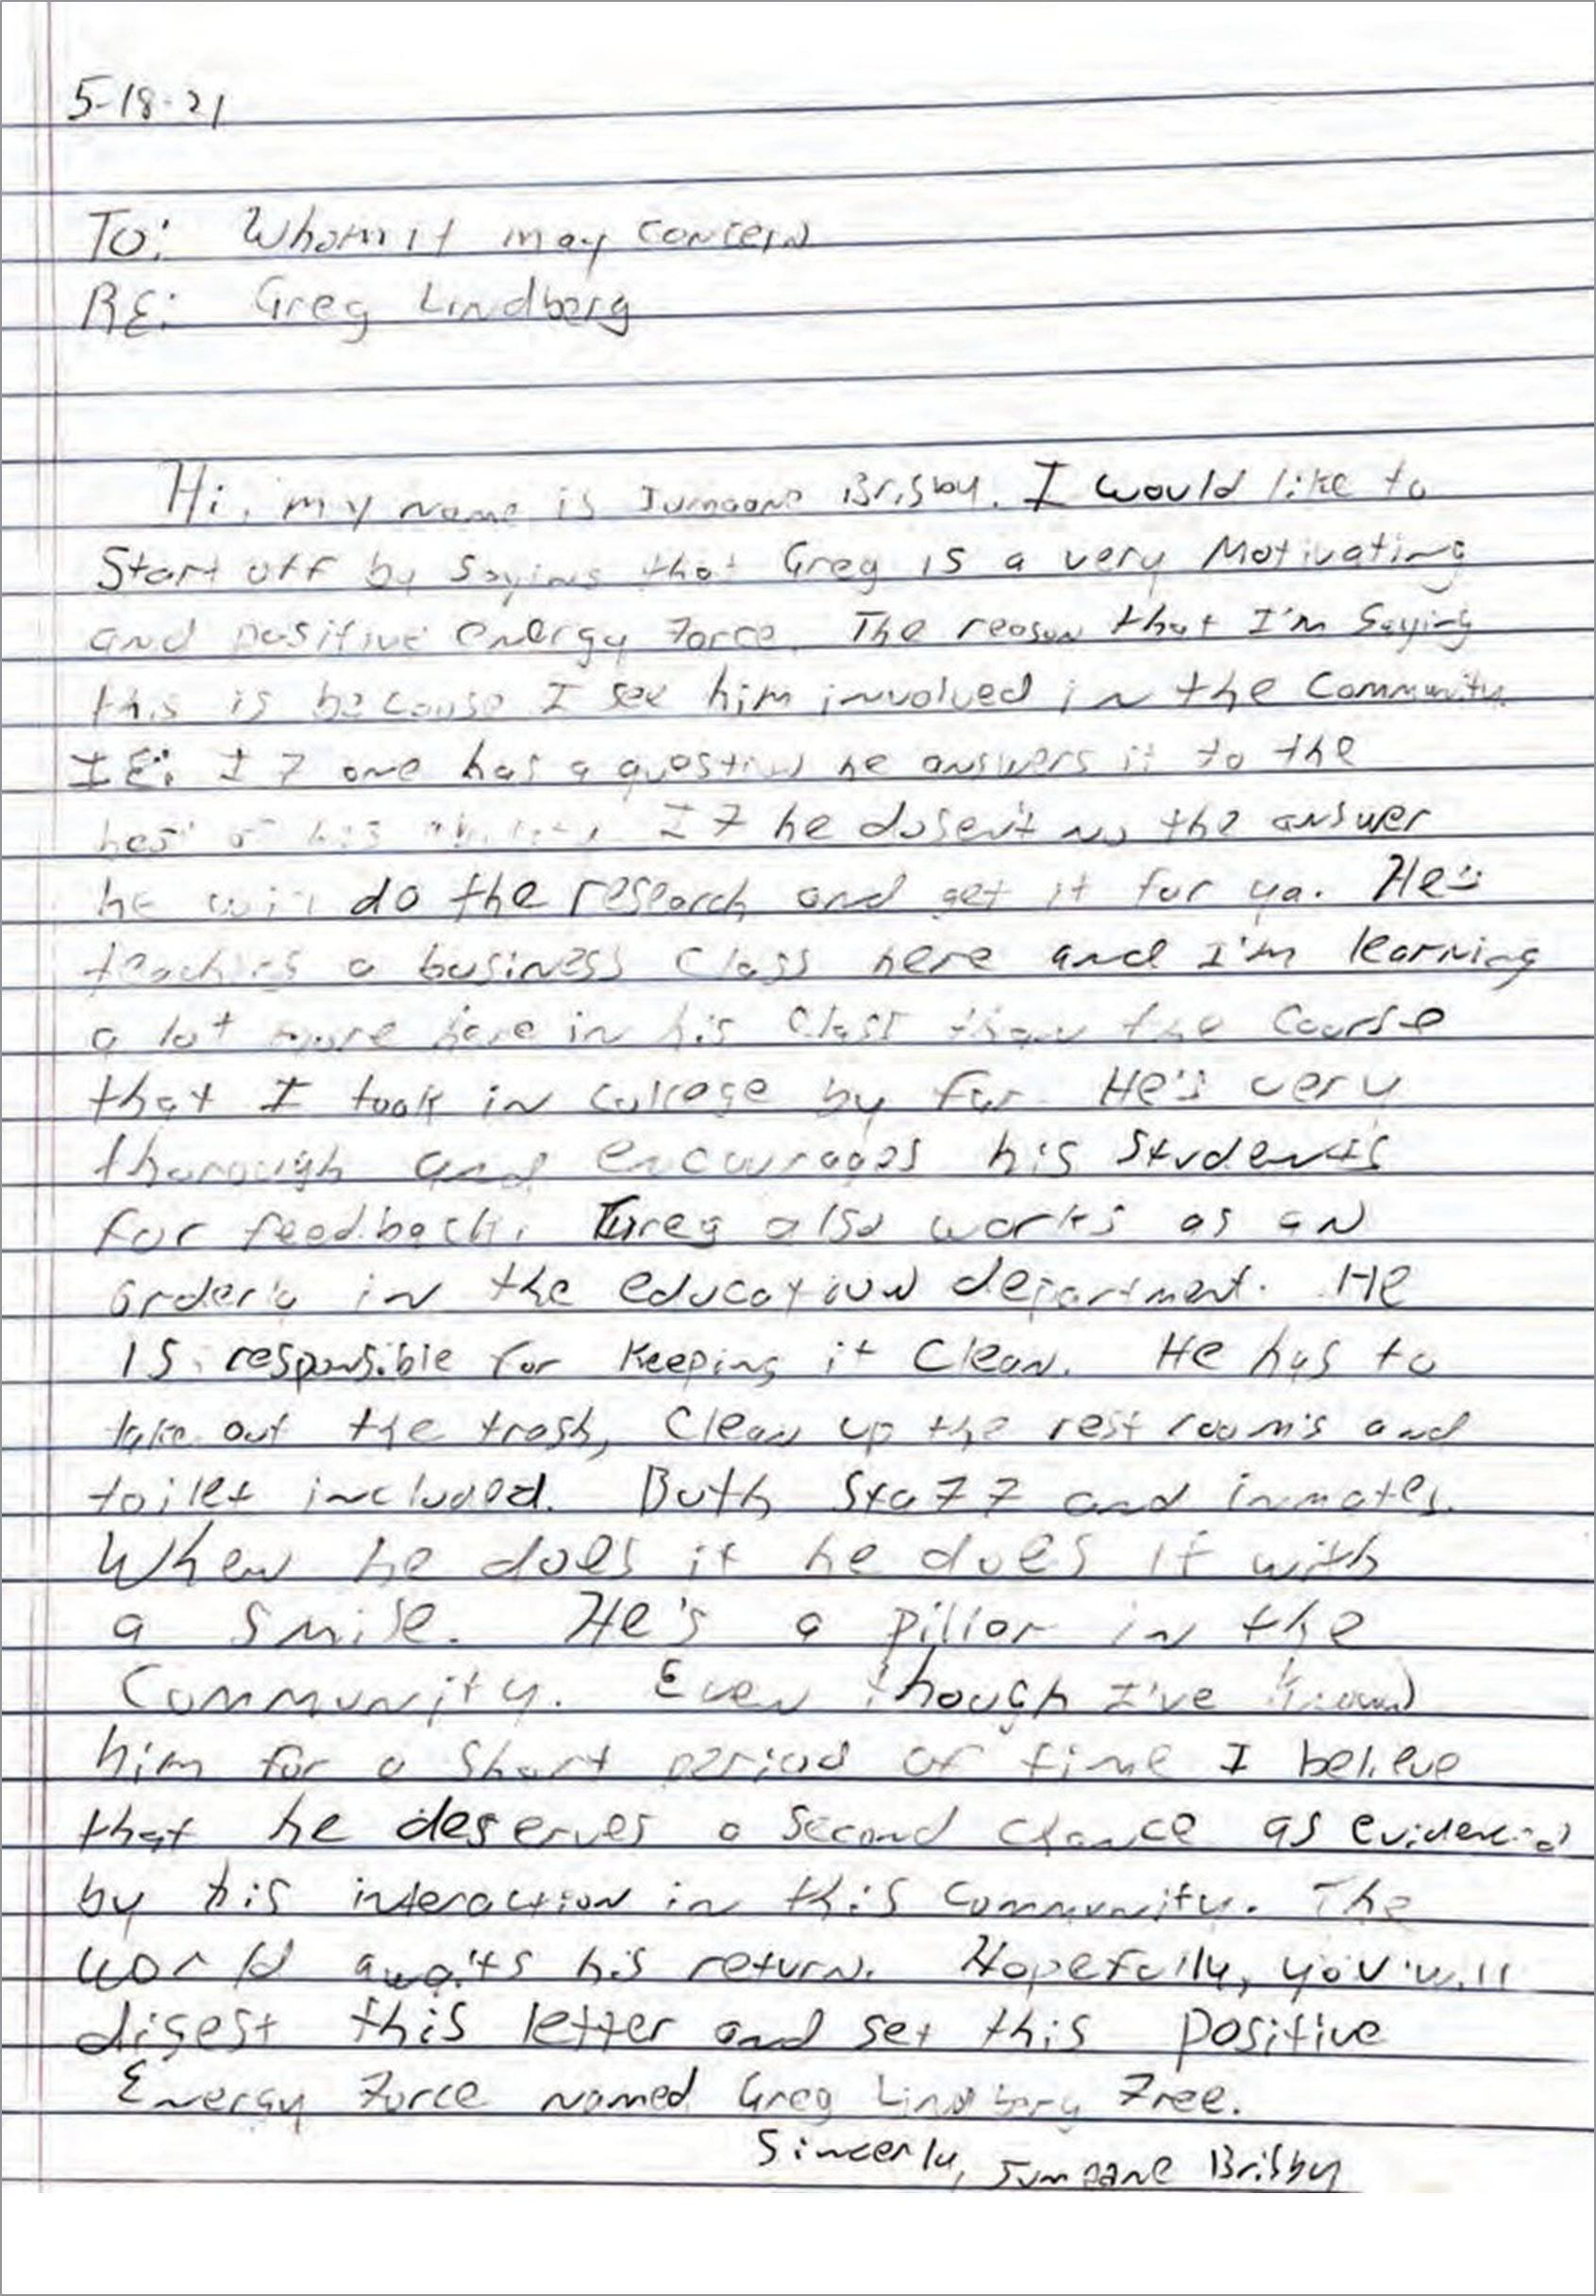 5-18-21
To: Whom it may concern
RE: Greg Lindberg
Hi, my name is Jumaane Brisby. I would like to
Start off by Saying that Greg is a very Motivating
and positive energy Force. The reason that I'm Saying
this is because I see him involved in the Community.
IE: If one has a question he answers it to the
best of his ability. If he dosen't no the answer
he will do the research and get it for ya. He's
teaches a business Class here and I'm learning
a lot more here in his Class than the Course
that I took in college by far. He's very
thorough and encourages his Students
for feedback. Greg also works as an
in the education department. He
is responsible for Keeping it Clean. He has to
take out the trash, Clean up the rest room's and
toilet included. Both Staff and inmates.
When he does it he does it with
a Smile. He's a pillor in the
Community. Even though I've known
him for a Short period of time I believe
that he deserves a Second chance as evidenced
by his interaction in this Community. The
world awaits his return. Hopefully, you will
digest this letter and set this positive
Energy Force named Greg Lindberg Free.
Sincerly, Jumaane Brisby